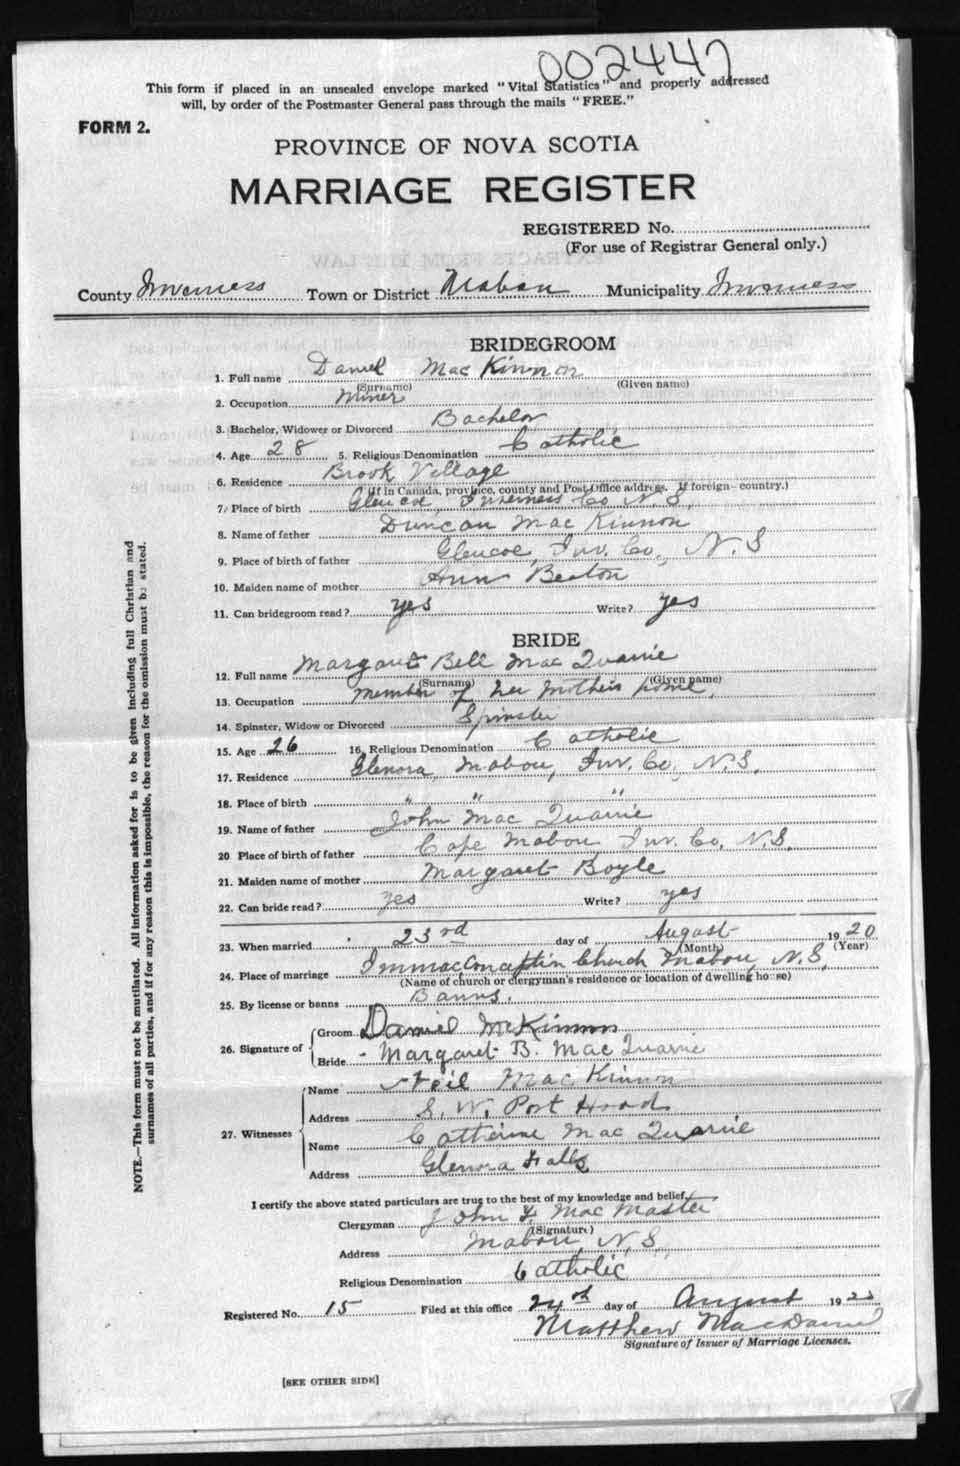 002447
This form if placed in an unsealed envelope marked "Vital Statistics" and properly addressed
will, by order of the Postmaster General pass through the mails "FREE."
FORM 2.
PROVINCE OF NOVA SCOTIA
MARRIAGE REGISTER
REGISTERED No.
(For use of Registrar General only.)
County Inverness Town or District Mabou Municipality Inverness
BRIDEGROOM
1. Full name Daniel Mac Kinnon
(Surname) (Given name)
2. Occupation Miner
3. Bachelor, Widower or Divorced Bachelor
4. Age 28 5. Religious Denomination Catholic
6. Residence Brook Village
(If in Canada, province, county and Post Office address. If foreign—country.)
7. Place of birth Glencoe, Inverness Co N.S.
8. Name of father Duncan Mac Kinnon
9. Place of birth of father Glencoe, Inv. Co., N.S
10. Maiden name of mother Ann Beaton
11. Can bridegroom read? yes Write? yes
BRIDE
12. Full name Margaret Bell Mac Quarrie
(Surname) (Given name)
13. Occupation Member of her mothers home.
14. Spinster, Widow or Divorced Spinster
15. Age 26 16. Religious Denomination Catholic
17. Residence Glenora, Mabou, Inv. Co., N.S.
18. Place of birth " " "
19. Name of father John Mac Quarrie
20 Place of birth of father Cape Mabou Inv. Co. N.S.
21. Maiden name of mother Margaret Boyle
22. Can bride read? yes Write? yes
23. When married 23rd day of August 1920
(Month) (Year)
24. Place of marriage ImmacConception Church Mabou, N.S,
(Name of church or clergyman's residence or location of dwelling house)
25. By license or banns Banns.
26. Signature of Groom Daniel McKinnon
Bride Margaret B. Mac Quarrie
27. Witnesses Name Neil Mac Kinnon
Address S. W. Port Hood
Name Catherine Mac Quarrie
Address Glenora Falls
I certify the above stated particulars are true to the best of my knowledge and belief.
Clergyman John F. Mac Master
(Signature)
Address Mabou, N.S.,
Religious Denomination Catholic
Registered No. 15 Filed at this office 24th day of August 1920
Matthew MacDaniel
Signature of Issuer of Marriage Licenses.
[SEE OTHER SIDE]
NOTE.—This form must not be mutilated. All information asked for is to be given including full Christian and
surnames of all parties, and if for any reason this is impossible, the reason for the omission must be stated.